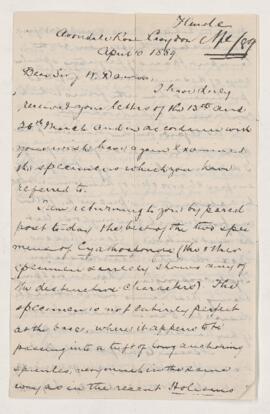 Hinde
Avondale Road Croydon Apl/89
April 10 1889
Dear Sir W. Dawson,
I have duly
received your letters of the 13th and
26th March and in accordance with
your wish have again examined
the specimens which you have
referred to.
I am returning to you by parcel
post to-day the best of the two speci
mens of Cyathospongia (the other
specimen scarcely shows any of
the distinctive characters). The
specimen is not entirely perfect
at the base, where it appears to be
passing into a tuft of long anchoring
spicules, very much in the same
way as in the recent